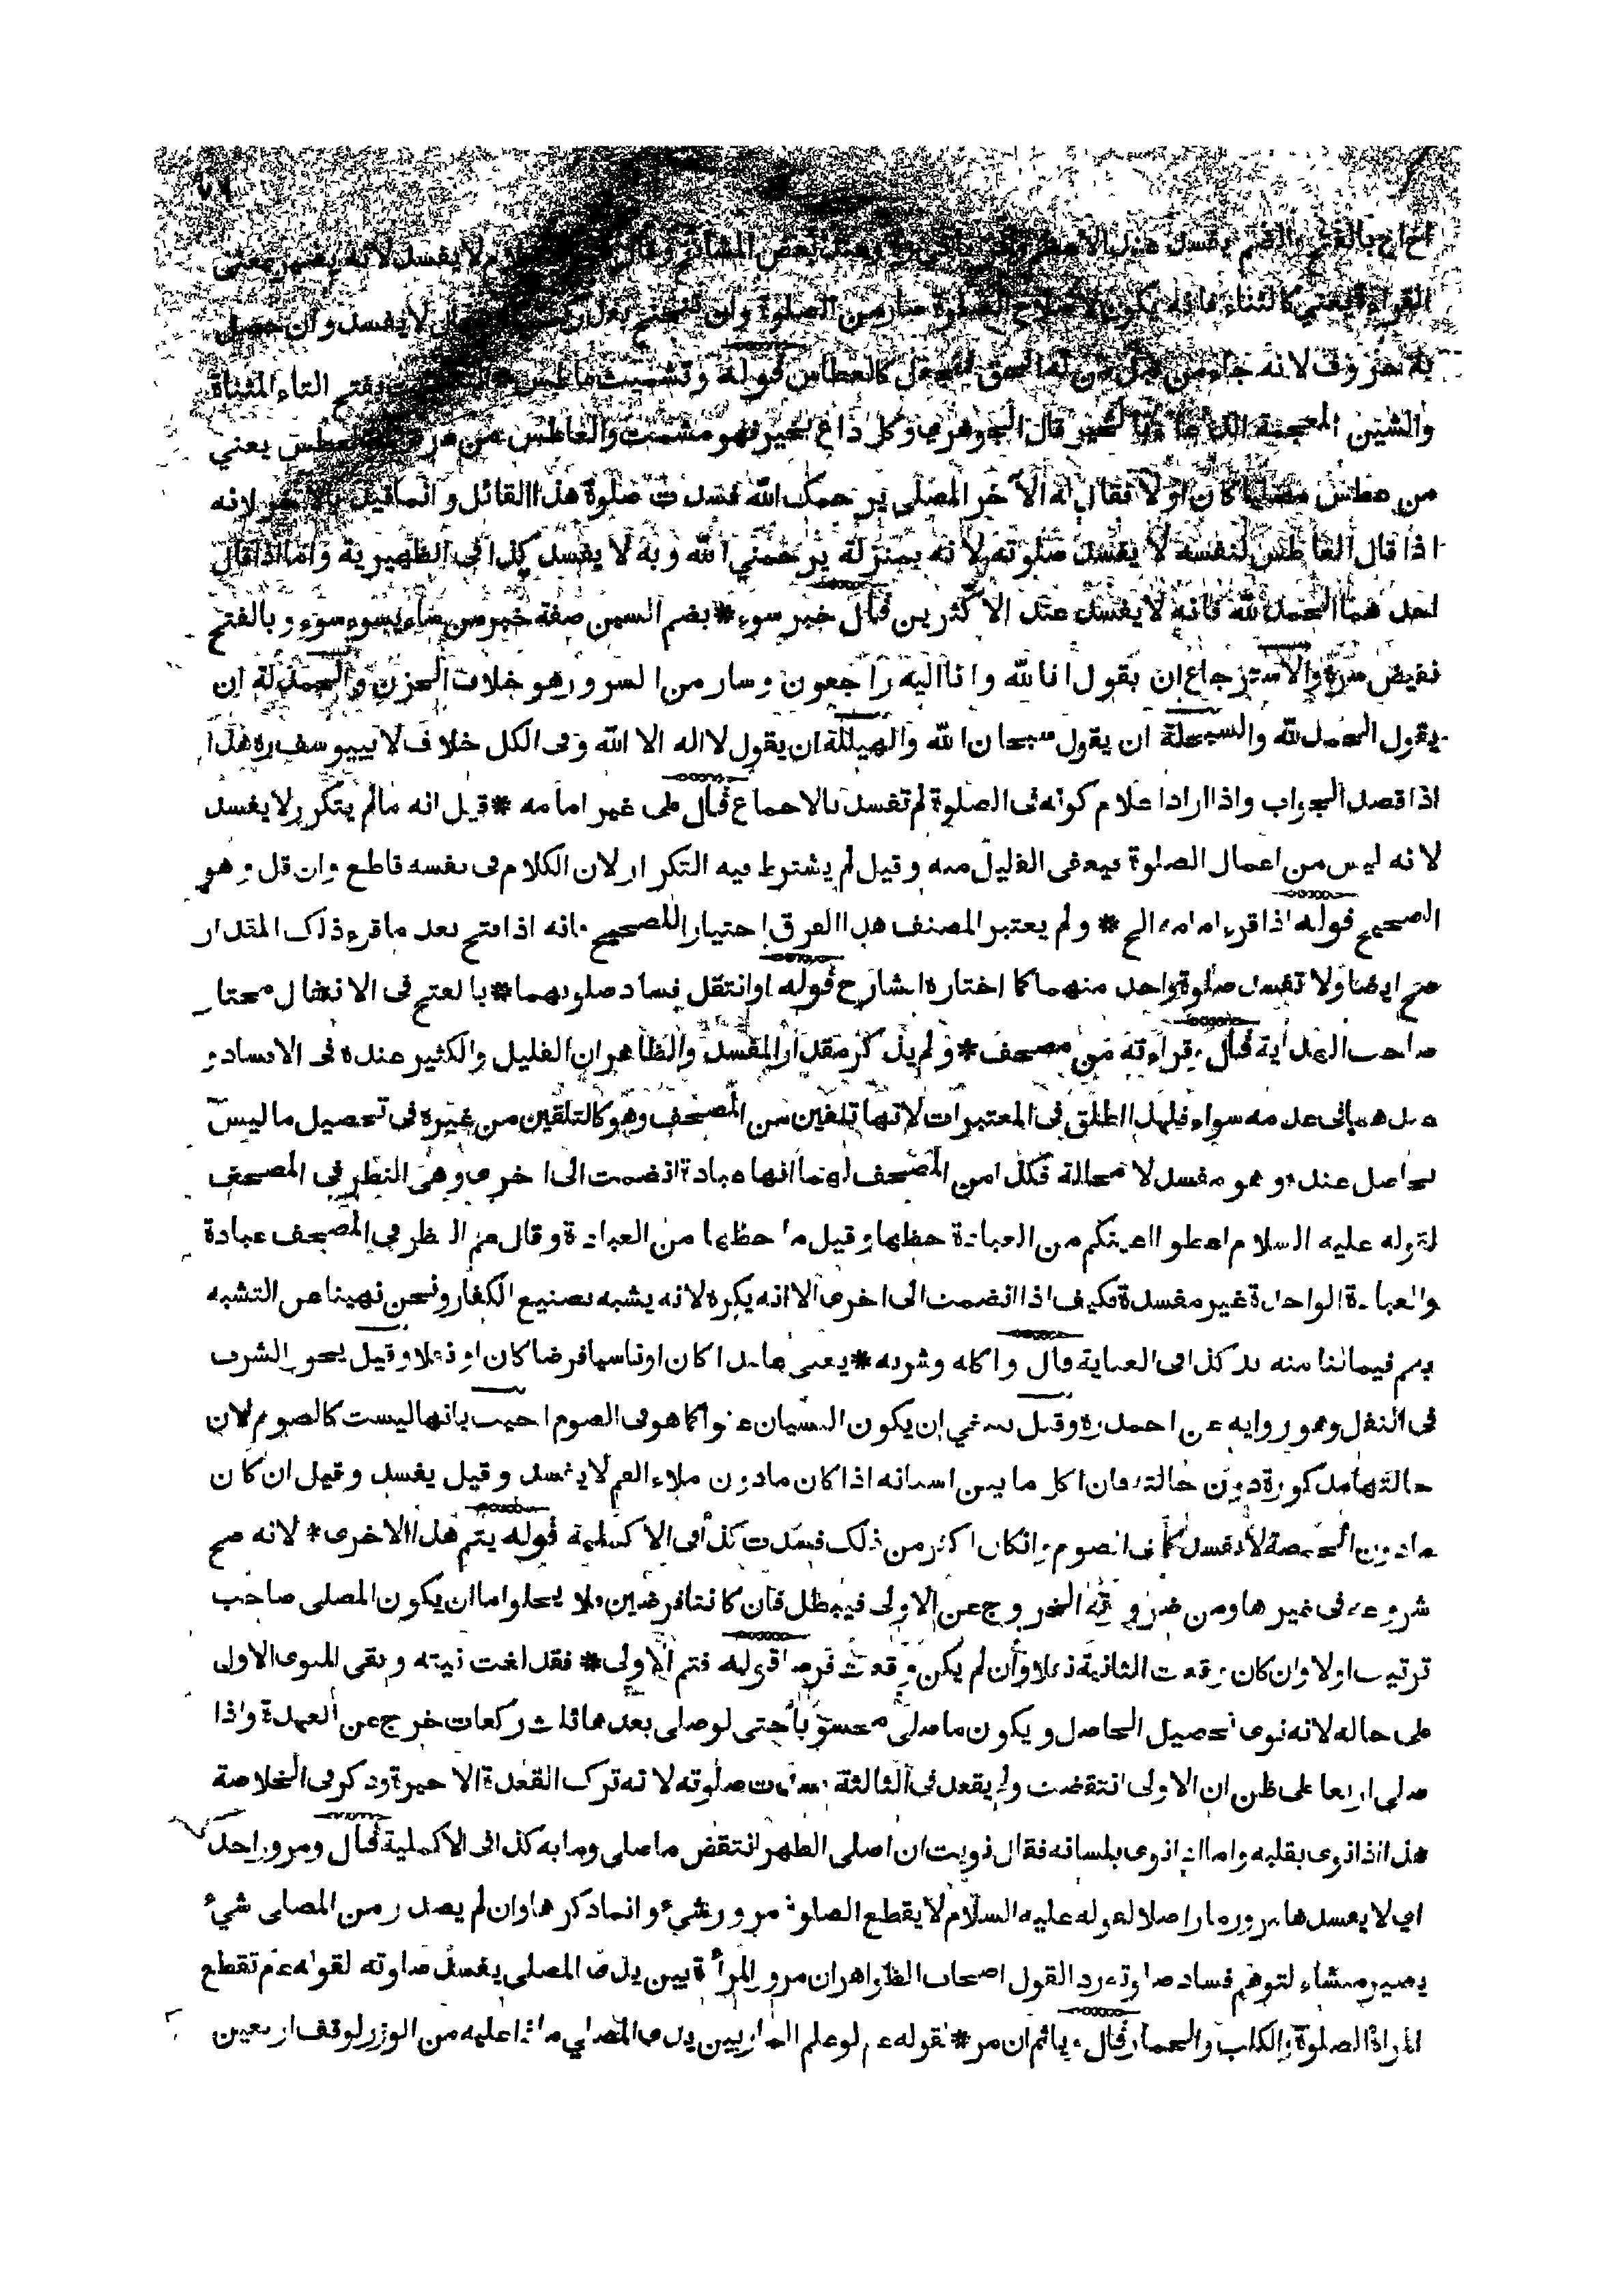 اح اح بالفتح والضم يفسد عند وعند بعض المشائخ وقال لا يفسد لانه يصير بمعنى
القراءة يعني كالثناء فانه يكون لاصلاح الصلوة صار من الصلوة وان لم لا يفسد وان حصل
به حروف لانه جاء من قبل من له الحق فيجعل كالعطاس قوله وتشميت عاطس * بفتح التاء المثناة
والشين المعجمة الدعاء بالخير قال الجوهري وكل داع بخير فهو مشمت والعاطس من العطس يعني
من عطس مصليا كان او لا فقال له الآخر المصلى يرحمك الله فسدت صلوة هذا القائل وانما قيل بالآخر لانه
اذا قال العاطس لنفسه لا يفسد صلوته لانه بمنزلة يرحمني الله وبه لا يفسد كذا في الظهيرية واما اذا قال
احدهما الحمد لله فانه لا يفسد عند الاكثرين قال خبر سوء * بضم السين صفة خبر من ساء يسوء سوء وبالفتح
نقيض سره والاسترجاع ان يقول انا لله وانا اليه راجعون وسار من السرور هو خلاف الحزن والحمدلة ان
يقول الحمد لله والسبحلة ان يقول سبحان الله والهيللة ان يقول لا اله الا الله وفي الكل خلاف لابي يوسف ره هذا
اذا قصد الجواب واذا اراد اعلام كونه في الصلوة لم تفسد بالاجماع قال على غير امامه * قيل انه مالم يتكرر لا يفسد
لانه ليس من اعمال الصلوة فيعفى القليل منه وقيل لم يشترط فيه التكرار لان الكلام في نفسه قاطع وان قل وهو
الصحيح قوله اذا قرء امامه الخ * ولم يعتبر المصنف هذا الفرق اختيارا للصحيح فانه اذا فتح بعد ما قرء ذلك المقدار
صح ايضا ولا تفسد صلوة واحد منهما كما اختاره الشارح قوله او انتقل فساد صلوتهما * بالفتح في الانتقال مختار
صاحب الهداية قال وقراءته من مصحف * ولم يذكر مقدار المفسد والظاهر ان القليل والكثير عنده في الافساد و
عندهما في عدمه سواء فلهذا اطلق في المعتبرات لانها تلقين من المصحف وهو كالتلقين من غيره في تحصيل ما ليس
بحاصل عنده وهو مفسد لا محالة فكذا من المصحف لهما انها عبادة انضمت الى اخرى وهي النظر في المصحف
لقوله عليه السلام اعطوا اعينكم من العبادة حظها وقيل ما حظها من العبادة وقال عم النظر في المصحف عبادة
والعبادة الواحدة غير مفسدة فكيف اذا انضمت الى اخرى الا انه يكره لانه يشبه بصنيع الكفار ونحن نهينا عن التشبه
بهم فيما لنا منه بد كذا في العناية قال واكله وشربه * يعنى عامدا كان او ناسيا فرضا كان او نفلا وقيل يجوز الشرب
في النفل وهو رواية عن احمد ره وقيل ينبغي ان يكون النسيان عفوا كما هو في الصوم اجيب بانها ليست كالصوم لان
حالتها مذكورة دون حالته فان اكل ما بين اسنانه اذا كان ما دون ملاء الفم لا يفسد وقيل يفسد وقيل ان كان
مادون الحمصة لا تفسد كما في الصوم وان كان اكثر من ذلك فسدت كذا في الاكملية قوله يتم هذا الاخرى * لانه صح
شروعه في غيرها ومن ضرورته الخروج عن الاولى فيبطل فان كانتا فرضين فلا يخلوا اما ان يكون المصلى صاحب
ترتيب او لا وان كان وقعت الثانية نفلا وأن لم يكن وقعت فرضا قوله فتم الاولى * فقد لغت نيته وبقى المنوى الاولى
على حاله لانه نوى تحصيل الحاصل ويكون ما صلى محسوبا حتى لو صلى بعدها ثلث ركعات خرج عن العهدة واذا
صلى اربعا على ظن ان الاولى انتقضت ولم يقعد في الثالثة فسدت صلوته لانه ترك القعدة الاخيرة وذكر في الخلاصة
هذا اذا نوى بقلبه واما اذا نوى بلسانه فقال نويت ان اصلى الظهر انتقض ما صلى وما به كذا في الاكملية قال ومرور احد
اي لا يفسدها مرور مار اصلا لقوله عليه السلام لا يقطع الصلوة مرور شيء وانما ذكرها وان لم يصدر من المصلى شيء
يصير منشاء لتوهم فساد صلوته رد القول اصحاب الظواهر ان مرور المرأة بين يدى المصلى يفسد صلوته لقوله عم تقطع
المراة الصلوة والكلب والحمار قال وياثم ان مر * لقوله عم لو علم المار بين يدى المصلي ماذا عليه من الوزر لوقف اربعين